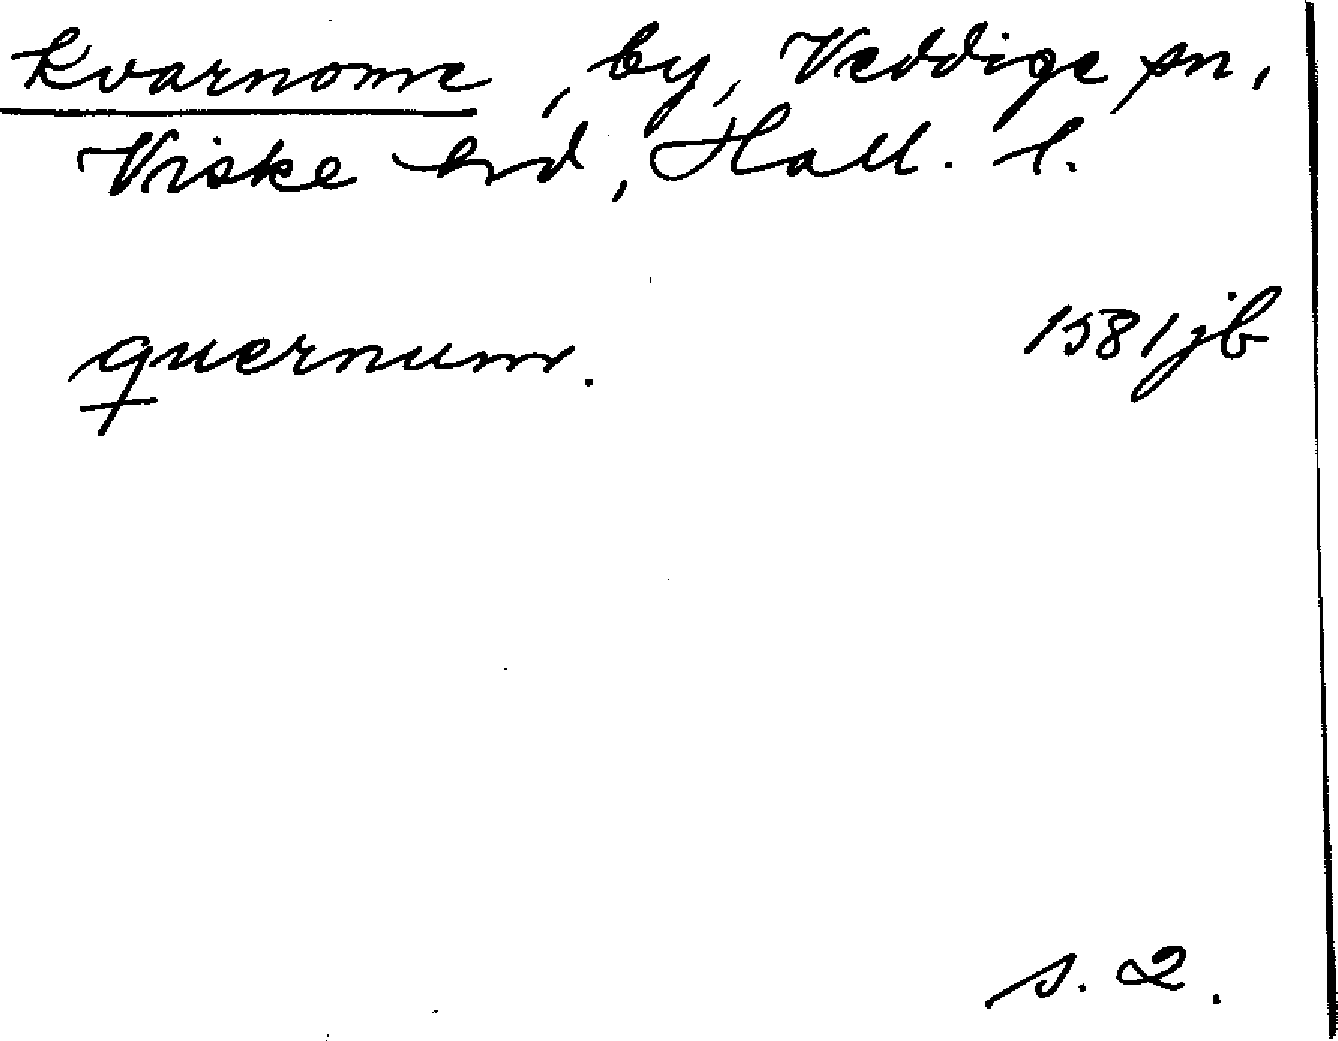 Kvarnome, by, Veddige sn,
Viske hrd, Hall. l.
quernum. 1581 jb
s. 2.